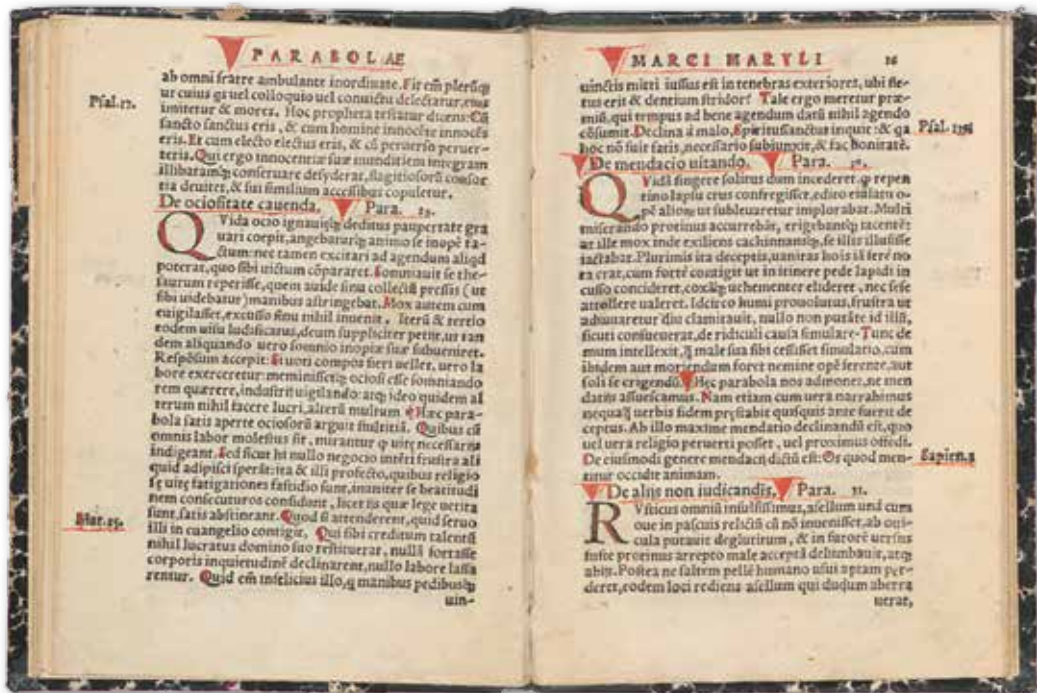 PARABOLAE
ab omni fratre ambulante inordinate. Fit em̃ plerũq;
ut cuius q̃s uel colloquio uel conuictu delectatur, eius
Psal. 17.
imitetur & mores. Hoc propheta testatur dicens: Cũ
sancto sanctus eris, & cum homine innocẽte innocẽs
eris. Et cum electo electus eris, & cũ peruerso peruer-
teris. Qui ergo innocentiæ suæ munditiem integram
illibatamq; conseruare desyderat, flagitiosorũ consor
tia deuitet, & sui similium accessibus copuletur.
De ociositate cauenda. Para. 29.
QVida ocio ignauiq; deditus paupertate gra
uari coepit, angebaturq; animo se inopẽ ia-
ctum: nec tamen excitari ad agendum aliqd
poterat, quo sibi uictum cõpararet. Somniauit se the-
saurum reperisse, quem auide sinu collectũ pressis (ut
sibi uidebatur) manibus astringebat. Mox autem cum
euigilasset, excusso sinu nihil inuenit. Iterũ & tertio
eodem uisu ludificatus, deum suppliciter petiit, ut tan
dem aliquando uero somnio inopiæ suæ subueniret.
Respõsum accepit: Si uoti compos fieri uellet, uero la
bore exerceretur: meminissetq; ociosi esse somniando
rem quærere, industrii uigilando: atq; ideo quidem al
terum nihil facere lucri, alterũ multum. Hæc para-
bola satis aperte ociosorũ arguit stultitiã. Quibus cũ
omnis labor molestus sit, mirantur q̃ uitę necessaria
indigeant. Sed sicut hi nullo negocio intẽti frustra ali
quid adipisci sperãt: ita & illi profecto, quibus religio
sę uitę fatigationes fastidio sunt, inaniter se beatitudi
nem consecuturos confidunt, licet iis quæ lege uetita
sunt, satis abstineant. Quod si attenderent, quid seruo
Mat. 25.
illi in euangelio contigit, Qui sibi creditum talentũ
nihil lucratus domino suo restituerat, nullã fortasse
corporis inquietudinẽ declinarent, nullo labore lassa
rentur. Quid em̃ infelicius illo, q manibus pedibusq;
uin-
MARCI MARVLI 16
uinctis mitti iussus est in tenebras exteriores, ubi fle-
tus erit & dentium stridor? Tale ergo meretur præ-
miũ, qui tempus ad bene agendum datũ nihil agendo
cõsumit. Declina à malo, Spiritussanctus inquit: & qa
Psal.
hoc nõ suit satis, necessario subiunxit, & fac bonitatẽ.
De mendacio uitando. Para. 30.
QVidã fingere solitus dum incederet, q repen
tino lapsu crus confregisset, edito eiulatu o-
pẽ alior ut subleuaretur implorabat. Multi
miserando protinus accurrebãt, erigebantq; iacentẽ:
at ille mox inde exiliens cachinnansq;, se illis illusisse
iactabat. Plurimis ita deceptis, uanitas hoĩs iã ferè no
ta erat, cum fortè contigit ut in itinere pede lapidi in
cusso concideret, coxãq; uehementer elideret, nec sese
attollere ualeret. Idcirco humi prouolutus, frustra ut
adiuuaretur diu clamitauit, nullo non putãte id illũ,
sicuti consueuerat, de ridiculi causa simulare. Tunc de
mum intellexit, q̃ male sua sibi cessisset simulatio, cum
ibidem aut moriendum foret nemine opẽ ferente, aut
soli se erigendũ. Hęc parabola nos admonet, ne men
datiis assuescamus. Nam etiam cum uera narrabimus
nequaq̃ uerbis fidem pręstabit quisquis ante fuerit de
ceptus. Ab illo maxime mendatio declinandũ est, quo
uel uera religio peruerti posset, uel proximus offẽdi.
Sapien. 1
De eiusmodi genere mendacii dictũ est: Os quod men-
titur occidit animam.
De aliis non iudicandis. Para. 31.
RVsticus omniũ insulsissimus, asellum unà cum
oue in pascuis relictũ cũ nõ inuenisset, ab oui-
cula putauit deglutitum, & in furorẽ uersus
fuste protinus arrepto male acceptã delumbauit, atq;
abiit. Postea ne saltem pellẽ humano usui aptam per-
deret, eodem loci rediens asellum qui dudum aberra
uerat,